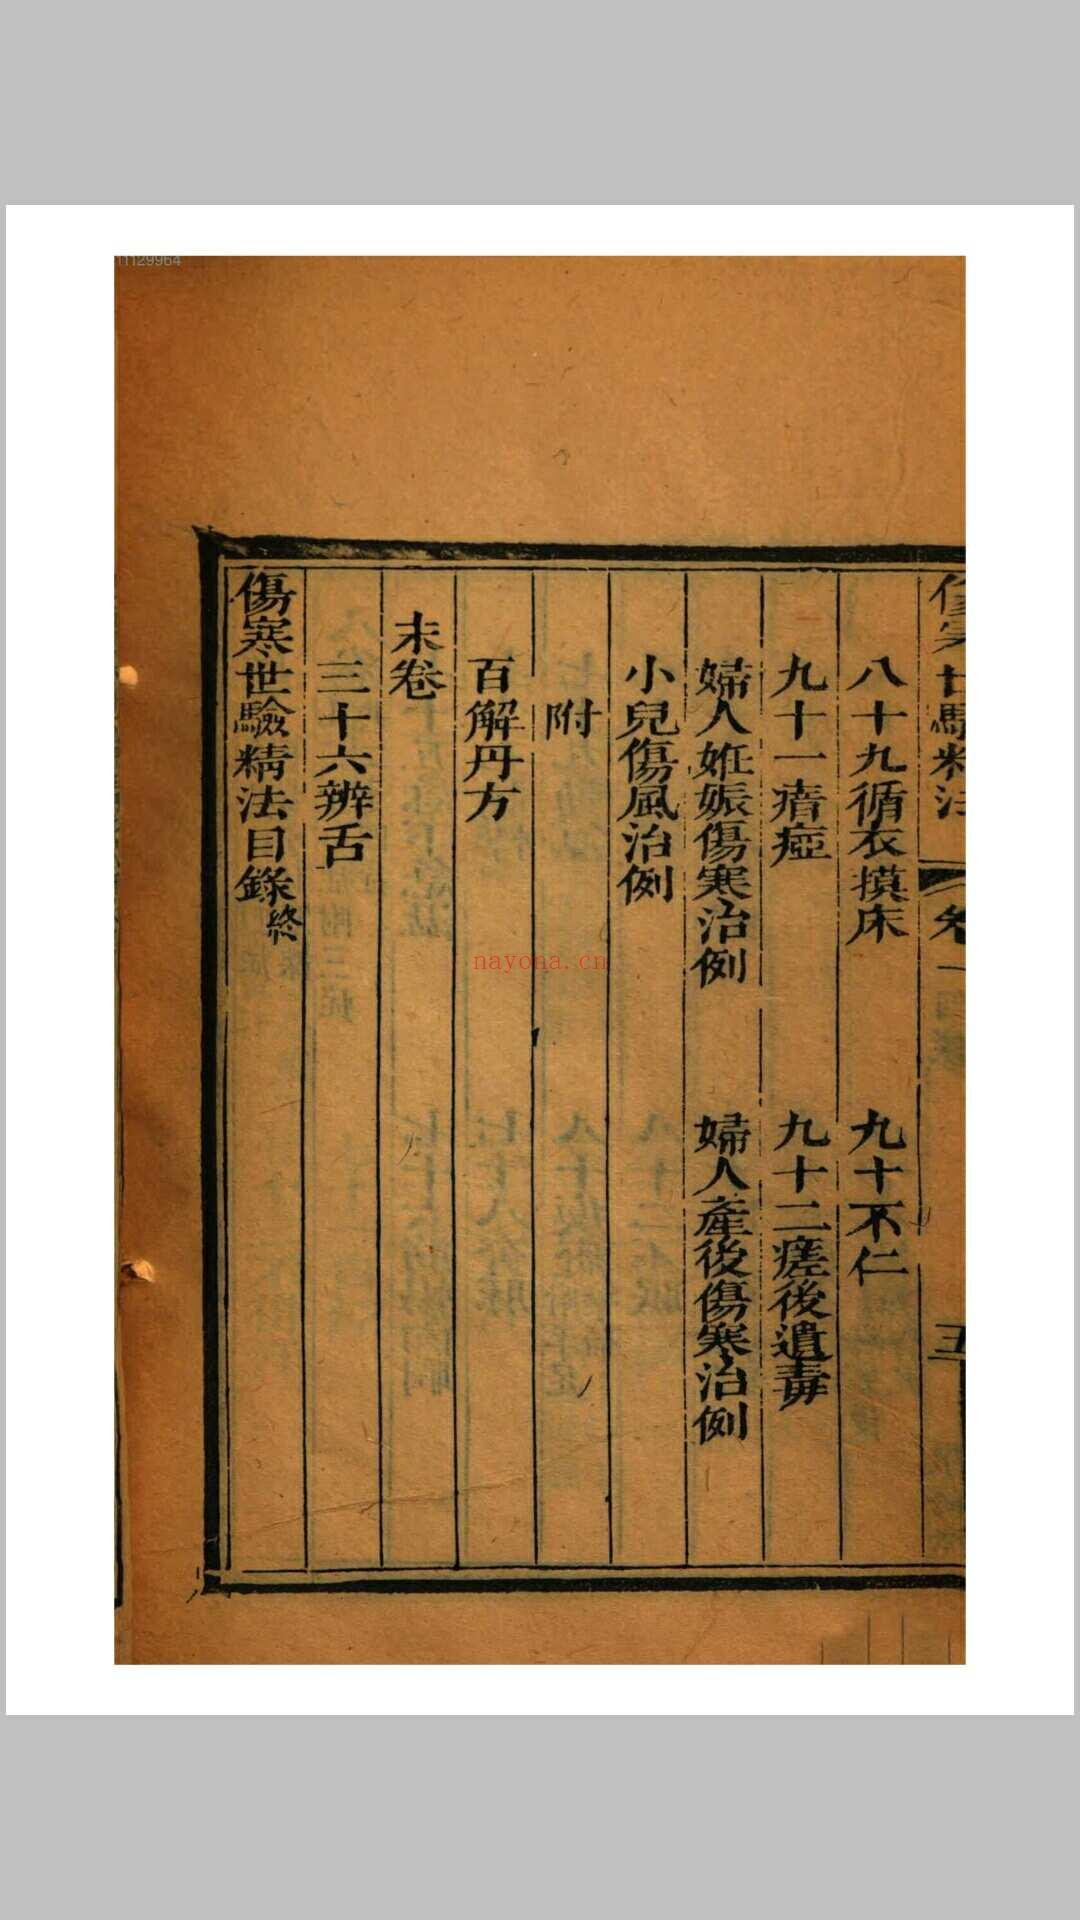 11129964
傷寒世驗精法 卷一 五
八十九循衣摸床 九十不仁
九十一瘖瘂 九十二瘥後遺毒
婦人姙娠傷寒治例 婦人產後傷寒治例
小兒傷風治例
附
百解丹方
末卷
三十六辨舌
傷寒世驗精法目錄終
nayona.cn